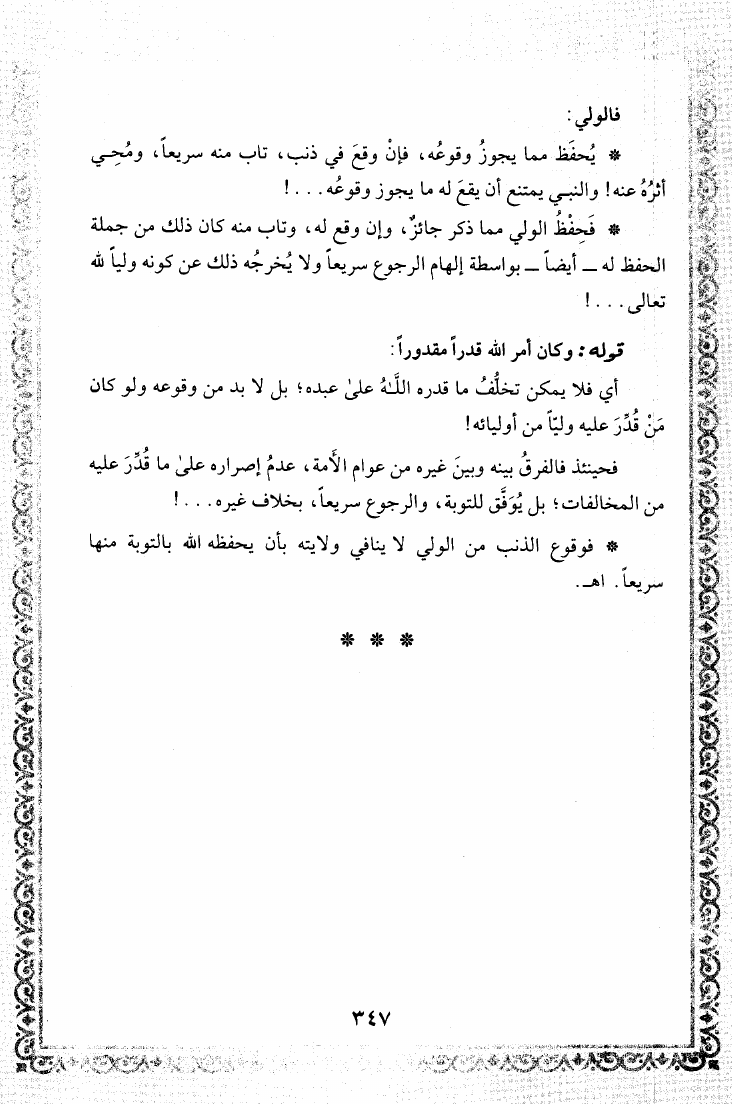 فالولي:
* يُحفَظ مما يجوزُ وقوعُه، فإنْ وقعَ في ذنب، تاب منه سريعاً، ومُحِي
أثرُهُ عنه! والنبي يمتنع أن يقعَ له ما يجوز وقوعُه. . . !
* فَحِفْظُ الولي مما ذكر جائزٌ، وإن وقع له، وتاب منه كان ذلك من جملة
الحفظ له ــ أيضاً ــ بواسطة إلهام الرجوع سريعاً ولا يُخرجُه ذلك عن كونه ولياً لله
تعالى. . . !
قوله: وكان أمر الله قدراً مقدوراً:
أي فلا يمكن تخلُّفُ ما قدره اللَّهُ علىٰ عبده؛ بل لا بد من وقوعه ولو كان
مَنْ قُدِّرَ عليه وليّاً من أوليائه!
فحينئذ فالفرقُ بينه وبينَ غيره من عوام الأمة، عدمُ إصراره علىٰ ما قُدِّرَ عليه
من المخالفات؛ بل يُوَفَّق للتوبة، والرجوع سريعاً، بخلاف غيره. . . !
* فوقوع الذنب من الولي لا ينافي ولايته بأن يحفظه الله بالتوبة منها
سريعاً. اهـ.
* * *
٣٤٧